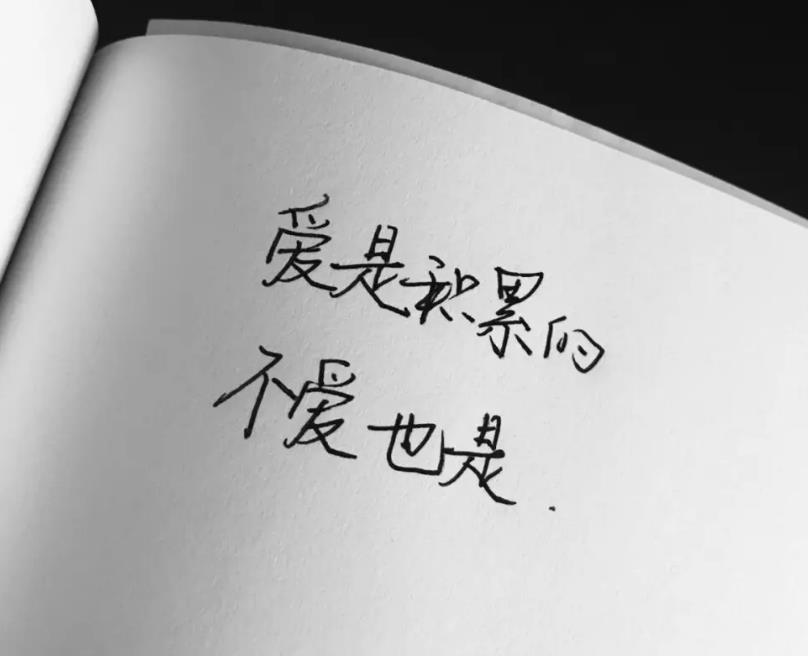 爱是积累的
不爱也是.